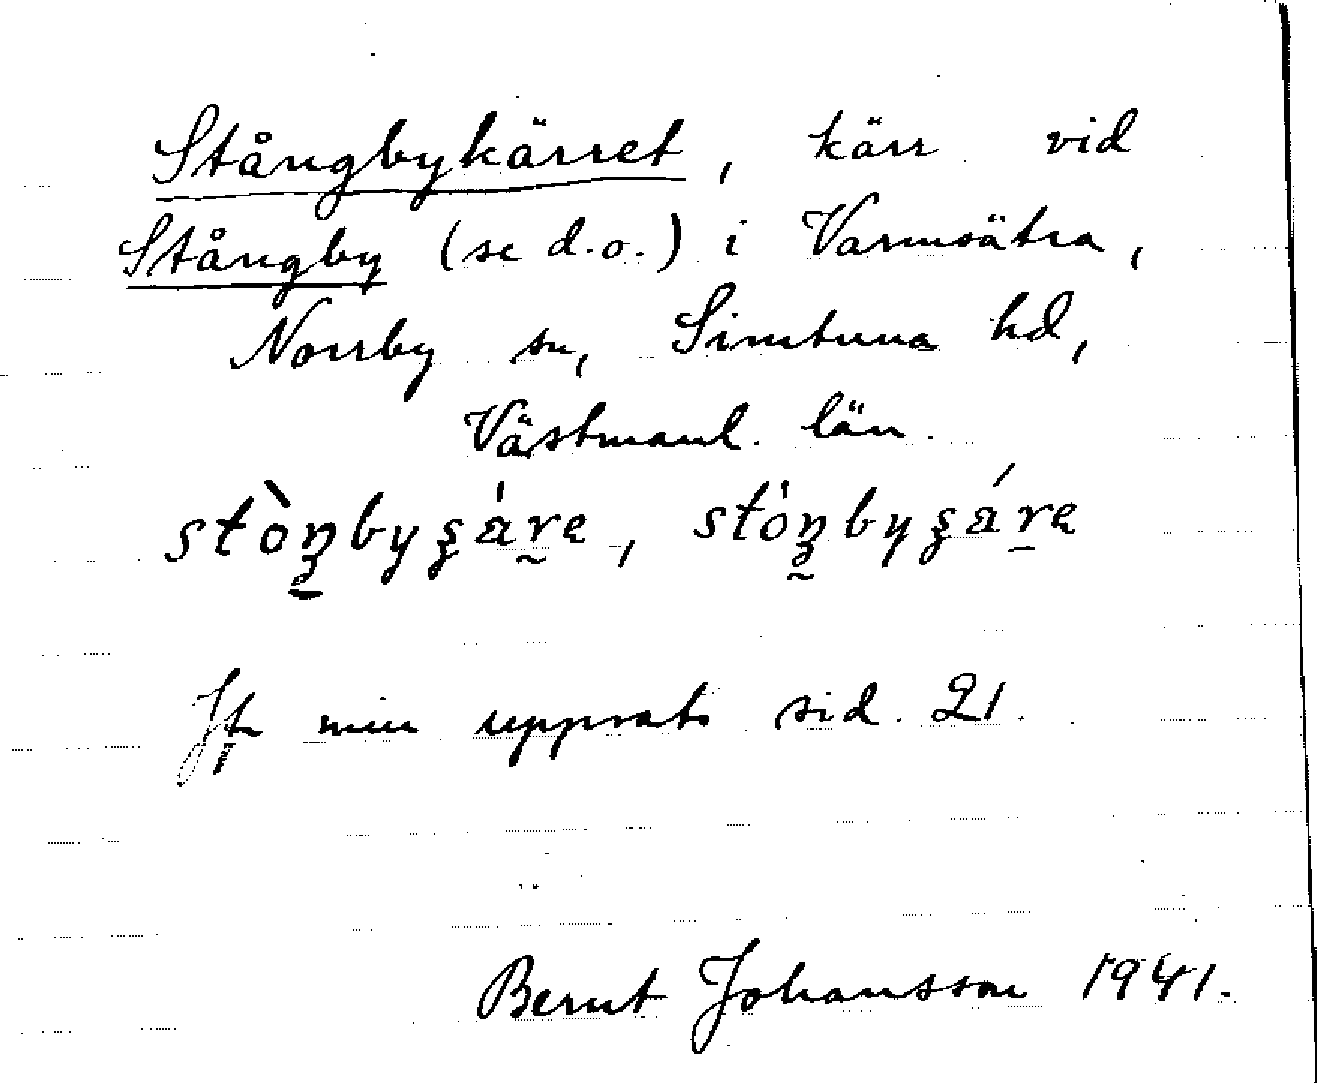 Stångbykärret, kärr vid
Stångby (se d.o.) i Varmsätra,
Norrby sn, Simtuna hd,
Västmanl. län.
stòŋbyʂáre, stóŋbyʂáre
Jfr min uppsats sid. 21.
Bernt Johansson 1941.